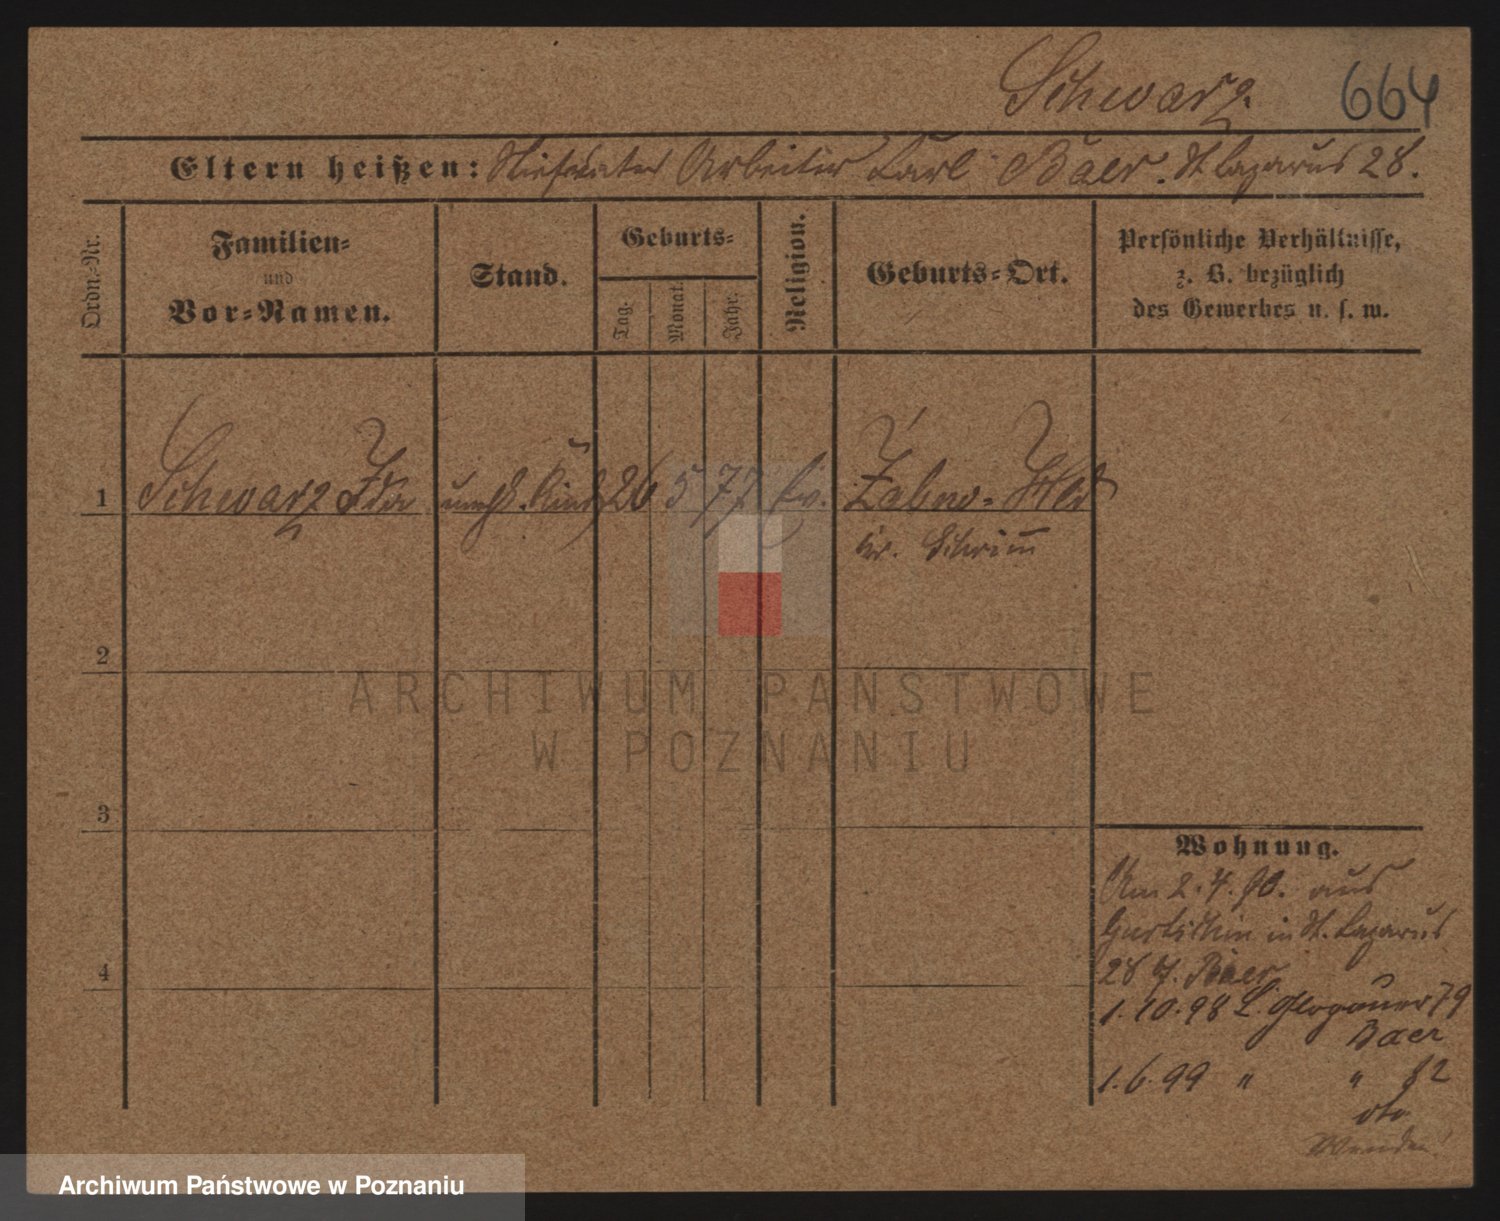 Schwarz. 664
Eltern heißen: Stiefvater Arbeiter Karl Baer. St. Lazarus 28.
Ordn.-Nr.
Familien-
und
Vor-Namen.
Stand.
Geburts-
Tag.
Monat.
Jahr.
Religion.
Geburts-Ort.
Persönliche Verhältnisse,
z. B. bezüglich
des Gewerbes u. s. w.
1 Schwarz Ida unehl. Kind 26 5 77 Ev. Zabno-
Kr. Schrimm
2
ARCHIWUM PAŃSTWOWE
W POZNANIU
3
4
Wohnung.
Am 2.4.90. aus
Gurtschin in St. Lazarus
28 b. Baer
1.10.98 L. Glogauer 79
Baer
1.6.99 " " 82
dto
Wenden!
Archiwum Państwowe w Poznaniu